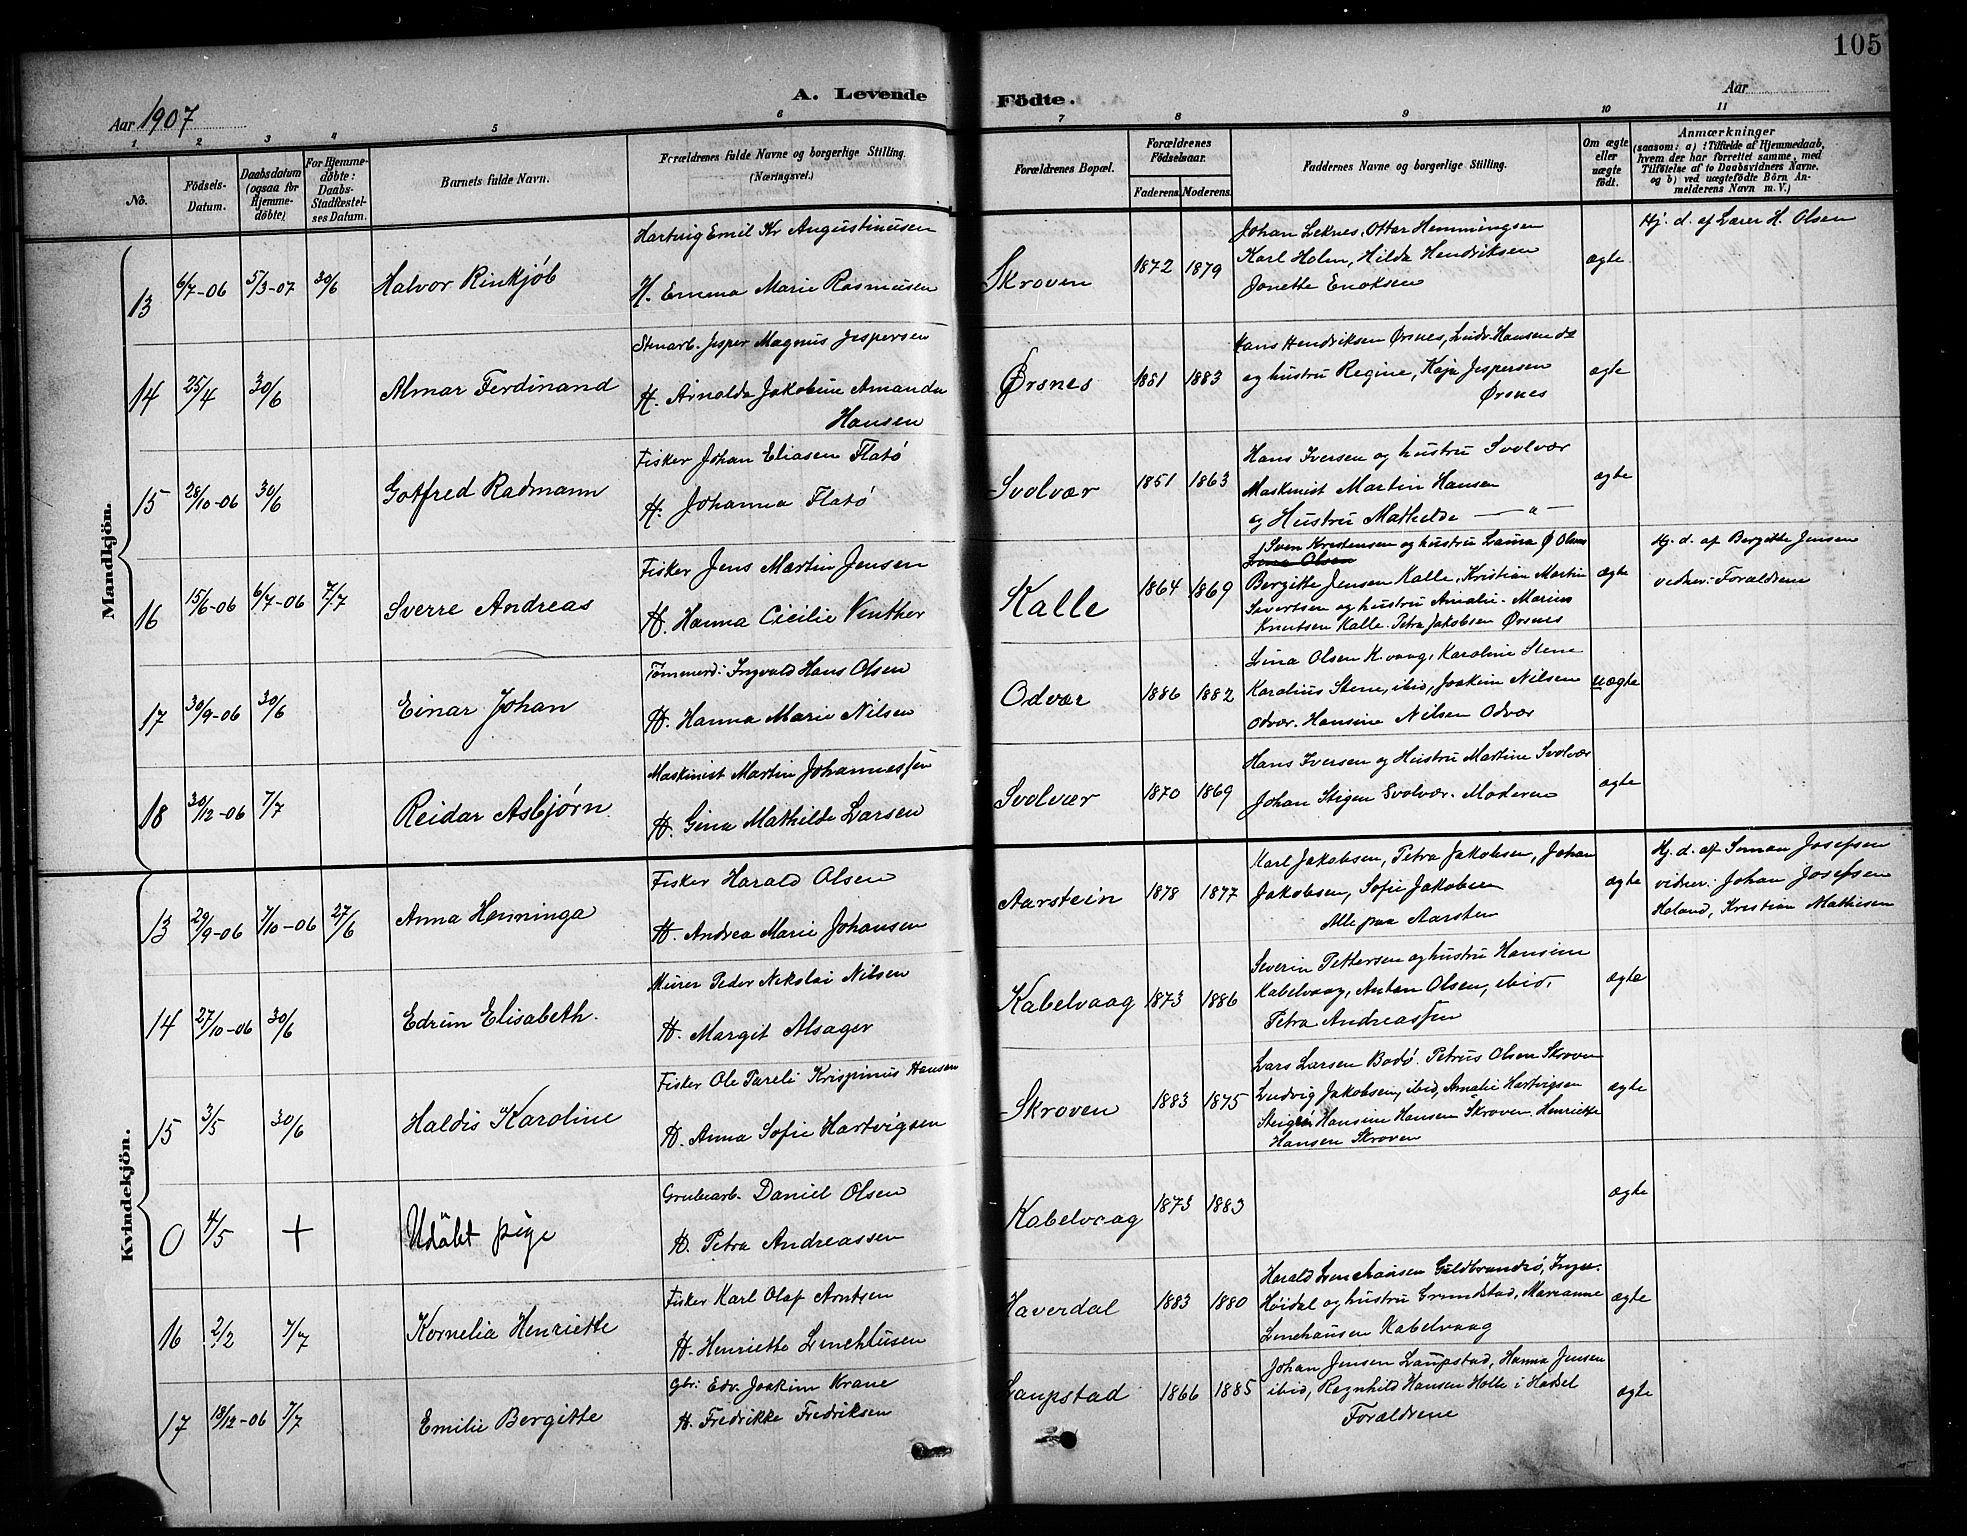 105
A. Levende Födte.
Aar 1907
Aar
1 2 3 4 5 6 7 8 9 10 11
No.
Födsels-Datum.
Daabsdatum (ogsaa for Hjemme-döbte)
For Hjemme-döbte: Daabs-Stadfæstel-ses Datum.
Barnets fulde Navn.
Forældrenes fulde Navne og borgerlige Stilling. (Næringsvei.)
Forældrenes Bopæl.
Forældrenes Födselsaar.
Faderens. Moderens.
Faddernes Navne og borgerlige Stilling.
Om ægte eller uægte födt.
Anmærkninger
(saasom: a) i Tilfælde af Hjemmedaab,
hvem der har forrettet samme, med
Tilföielse af to Daabsvidners Navne.
og b) ved uægtefödte Börn An-
melderens Navn m. V.)
Mandkjön.
13 6/7-06 5/3-07 30/6 Halvor Rinkjøb
Hartvig Emil Kr Augustinusen
H. Emma Marie Rasmusen
Skroven 1872 1879
Johan Leknes, Ottar Hemmingsen
Karl Holm, Hilda Hendriksen
Jonette Enoksen
ægte.
Hj. d. af Lærer H. Olsen
14 25/4 30/6 Almar Ferdinand
Stenarb. Jesper Magnus Jespersen
H. Arnolda Jakobine Amanda
Hansen
Ørsnes 1851 1883
Hans Hendriksen Ørsnes, Ludv. Hansen do
og hustru Regine, Kaja Jespersen
Ørsnes
ægte
15 28/10-06 30/6 Gotfred Radmann
Fisker Johan Eliasen Flatø
H. Johanna Flatø
Svolvær 1851 1863
Hans Iversen og hustru Svolvær
Maskinist Martin Hansen
og Hustru Mathilde — " —
ægte
16 15/6-06 6/7-06 7/7 Sverre Andreas
Fisker Jens Martin Jensen
H. Hanna Cicilie Vinther
Kalle 1864 1869
Sven Kristensen og hustru Laura Ø Olsen
Lina Olsen
Bergitte Jensen Kalle, Kristian Martin
Sivertsen og hustru Amalie. Marius
Knutsen Kalle. Petra Jakobsen Ørsnes
ægte
Hj. d. af Bergitte Jensen
vidner: Forældrene
17 30/9-06 30/6 Einar Johan
Tømmerd: Ingvald Hans Olsen
H. Hanna Marie Nilsen
Odvær 1886 1882
Lina Olsen K.vaag, Karoline Stene
Karolius Stene, ibid, Joakim Nilsen
Odvær. Hansine Nilsen Odvær
uægte
18 30/12-06 7/7 Reidar Asbjørn.
Maskinist Martin Johannessen
H. Gina Mathilde Larsen
Svolvær 1870 1869
Hans Iversen og Hustru Martine Svolvær
Johan Stigen Svolvær. Moderen
ægte
Kvindekjön.
13 29/9-06 7/10-06 27/6 Anna Henninga
Fisker Harald Olsen
H. Andrea Marie Johansen
Aarstein 1878 1877
Karl Jakobsen, Petra Jakobsen, Johan
Jakobsen, Sofie Jakobsen
Alle paa Aarsten
ægte
Hj. d. af Simon Josefsen
vidner: Johan Josefsen
Holand, Kristian Mathisen
14 27/10-06 30/6 Edrun Elisabeth.
Murer Peder Nikolai Nilsen
H. Margit Alsager
Kabelvaag 1873 1886
Severin Pettersen og hustru Hansine
Kabelvaag, Anton Olsen, ibid,
Petra Andreassen
ægte
15 3/5 30/6 Haldis Karoline
Fisker Ole Pareli Krispinus Hansen
H. Anna Sofie Hartvigsen
Skroven 1883 1875
Lars Larsen Bodø. Petrus Olsen Skroven
Ludvig Jakobsen, ibid, Amalie Hartvigsen
Steigen Hansine Hansen Skroven Henriette
Hansen Skroven
ægte
0 4/5 + Udöbt pige
Grubearb. Daniel Olsen
H. Petra Andreassen
Kabelvaag 1873 1883
ægte
16 2/2 7/7 Kornelia Henriette
Fisker Karl Olaf Arntsen
H. Henriette Linchhusen
Haverdal 1883 1880
Harald Linchausen Guldbrandsø, Ingv.
Høidal og hustru Grundstad, Marianne
Linehausen Kabelvaag
ægte
17 18/12-06 7/7 Emilie Bergitte
Gbr: Edv. Joakim Krane
H. Fredrikke Fredriksen
Laupstad 1866 1885
Johan Jensen Laupstad, Hanna Jensen
ibid, Regnhild Hansen Holle i Hadsel
Forældrene
ægte